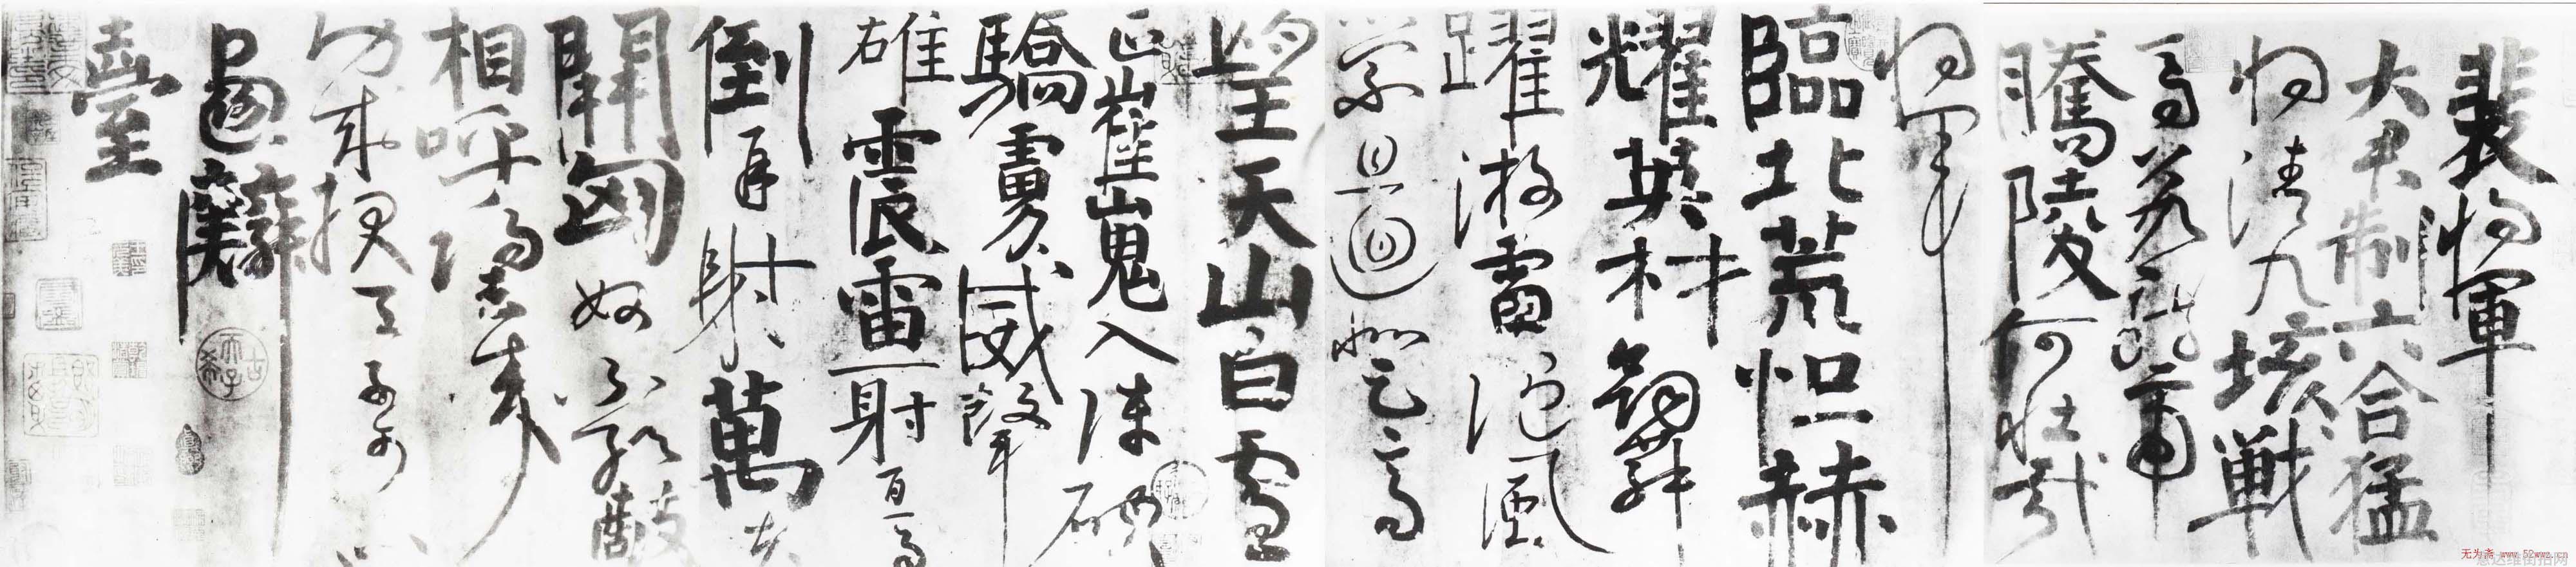 裴將軍
大君制六合猛
將清九垓戰
馬若龍虎
騰陵何壯哉
將軍
臨北荒烜赫
耀英材劒舞
躍游雷隨風
縈且迴登高
望天山白雪
正崔嵬入陣破
驕虜威聲
雄震雷一射百馬
倒再射萬夫
開匈奴不敢敵
相呼歸去來
功成報天子可以
畫麟
臺
古希天子
无为斋 www.52wwz.cn